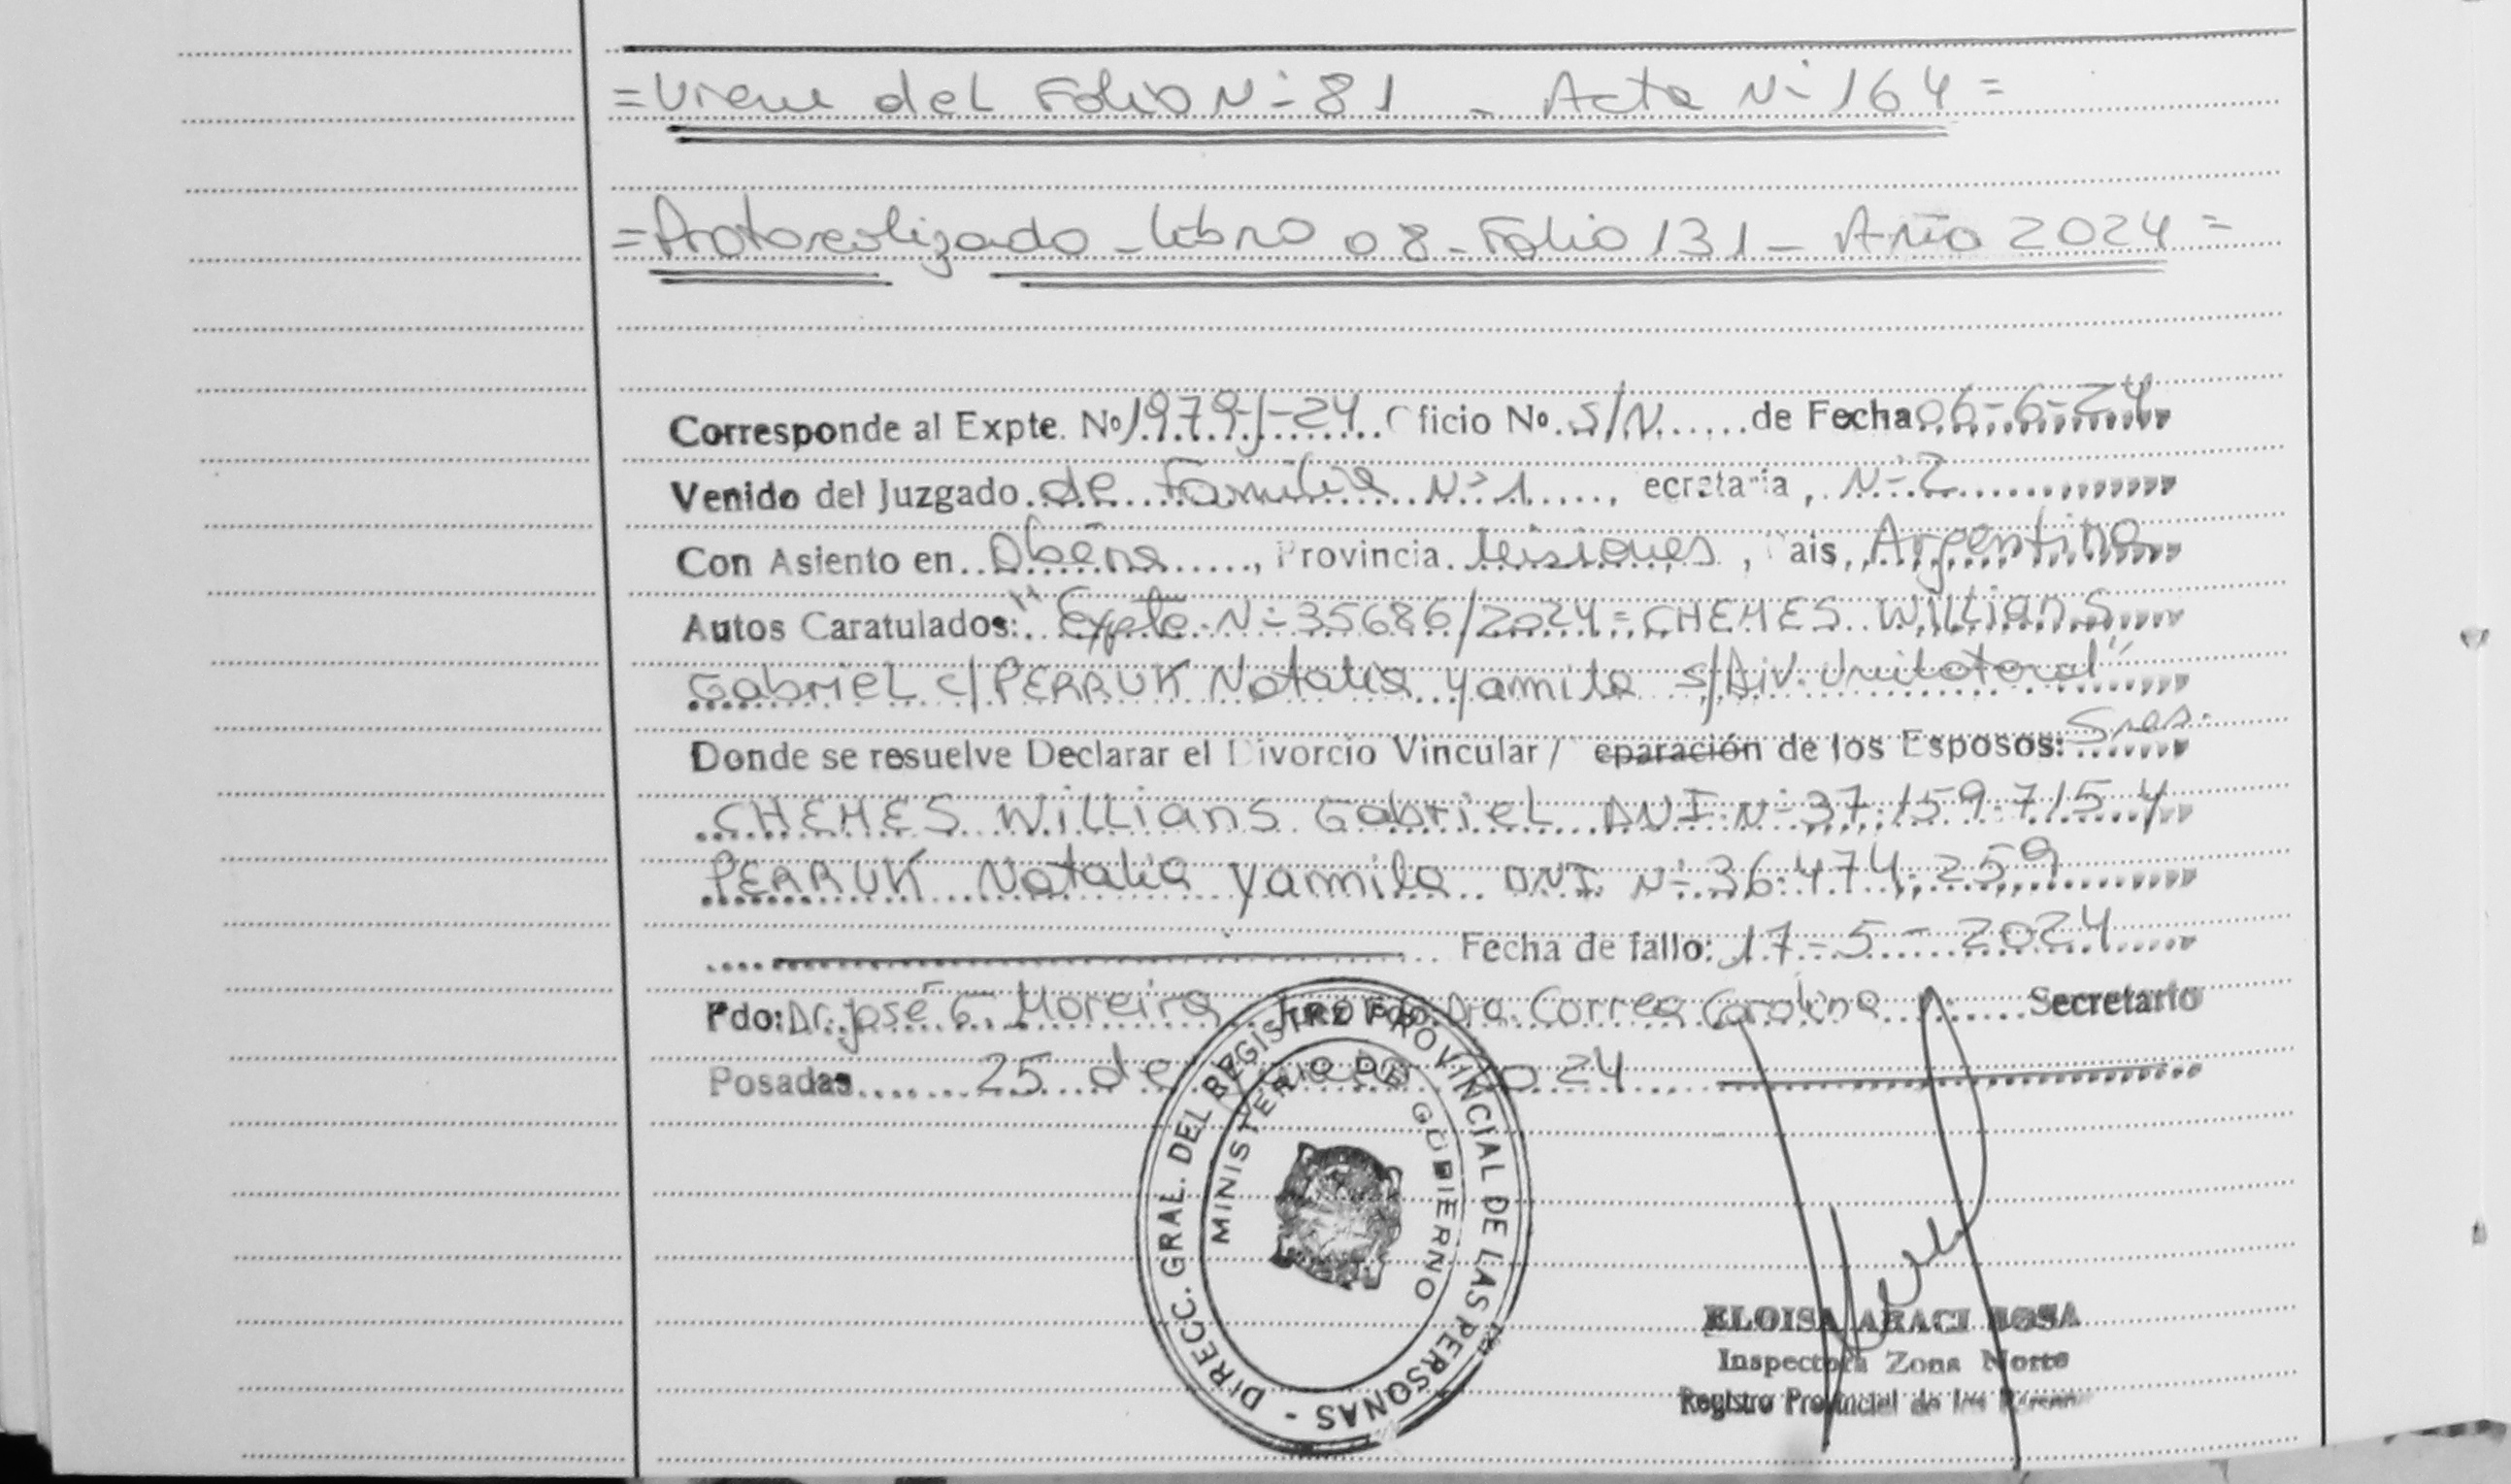 =Viene del Folio N-81 - Acta N-164=
=Protocolizado - Libro 08 - Folio 131 - Año 2024=
Corresponde al Expte. Nº 1979-J-24 ficio Nº. S/N......de Fecha 06-6-24
Venido del Juzgado de Familia Nº 1....., ecretaria, N-2
Con Asiento en..Oberá....., Provincia. Misiones, ais, Argentina
Autos Caratulados: "Expte. N-35686/2024=CHEMES Willians
Gabriel c/PERRUK Natalia Yamila s/Div. Unilateral"
Donde se resuelve Declarar el Divorcio Vincular / eparación de los Esposos: Sres.
CHEMES Willians Gabriel DNI N-37.159.715 y
PERRUK Natalia Yamila DNI N-36.474.259
Fecha de fallo: 17-5-2024
Fdo: Dr. José G. Moreira Dra. Correa Carolina Secretario
Posadas 25 de 24
DIRECC. GRAL. DEL REGISTRO PROVINCIAL DE LAS PERSONAS -
MINISTERIO DE GOBIERNO
ELOISA ARACI ROSA
Inspectora Zona Norte
Registro Provincial de las